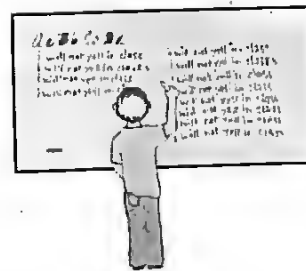 Aa Bb Cc Dd
I will not yell in class
I will not yell in class
I will not yell in class
I will not yell in class
I will not yell in class
I will not yell in class
I will not yell in class
I will not yell in class
I will not yell in class
I will not yell in class
I will not yell in class
I will not yell in class